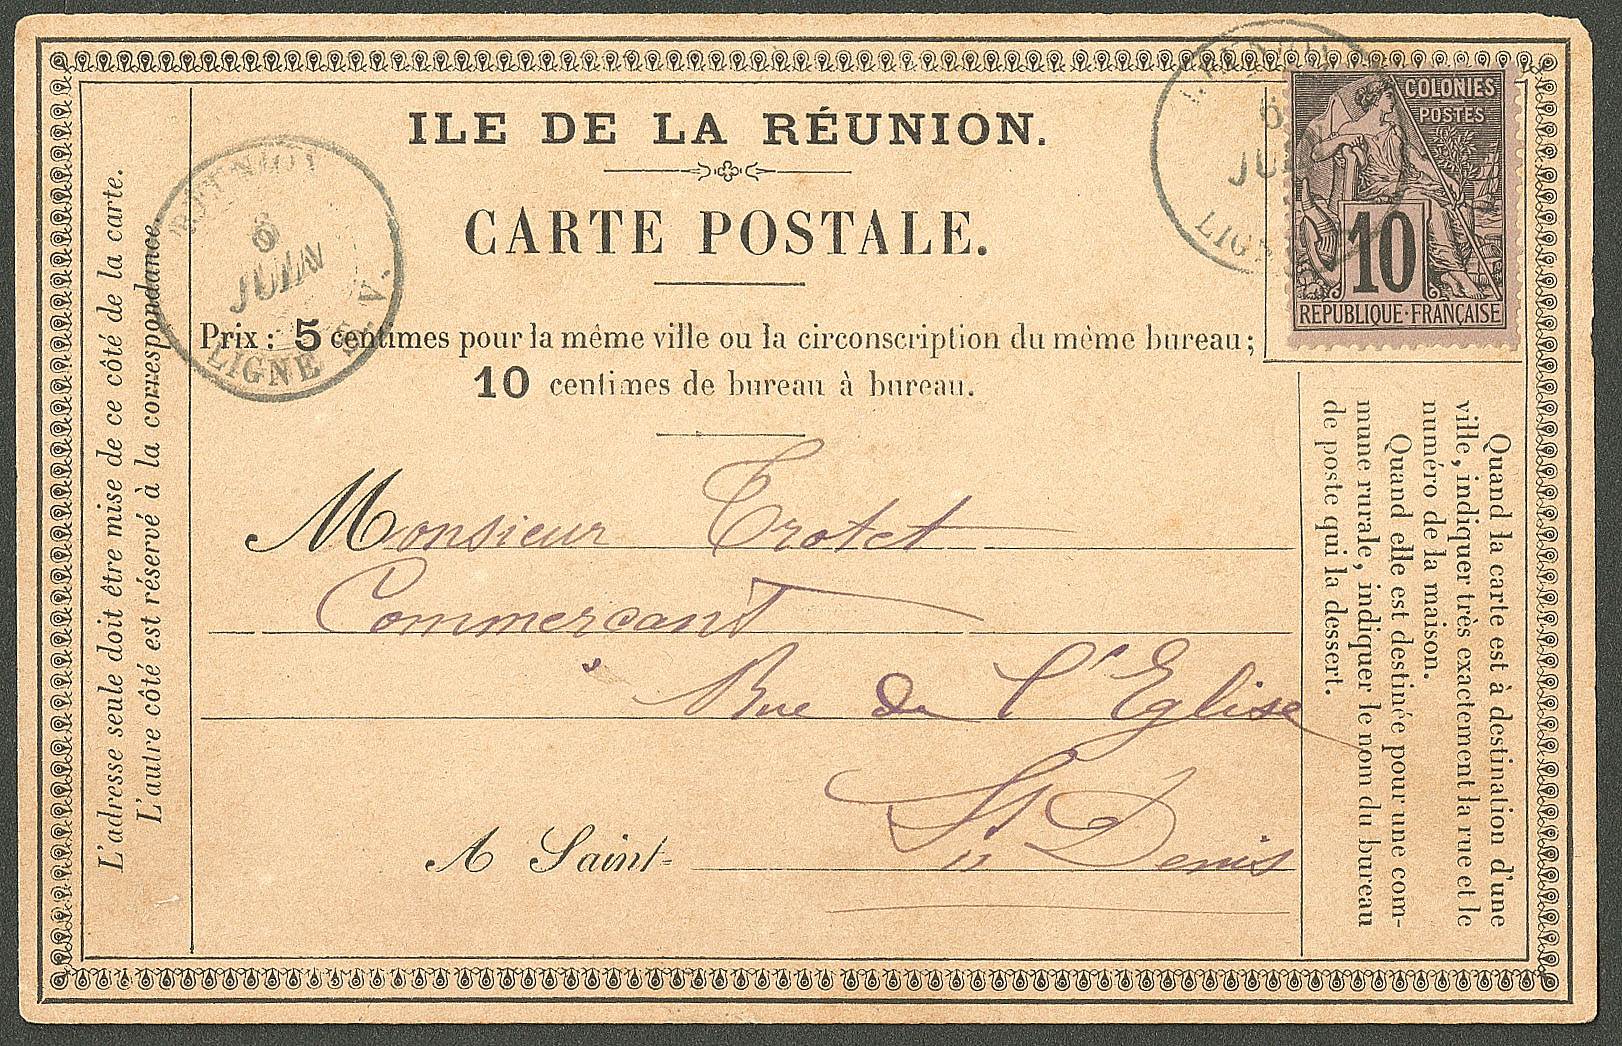 ILE DE LA RÉUNION.
CARTE POSTALE.
Prix : 5 centimes pour la même ville ou la circonscription du même bureau;
10 centimes de bureau à bureau.
Monsieur Trotet
Commerçant
Rue de l'Eglise
A Saint- St Denis
L'adresse seule doit être mise de ce côté de la carte.
L'autre côté est réservé à la correspondance.
Quand la carte est à destination d'une
ville, indiquer très exactement la rue et le
numéro de la maison.
Quand elle est destinée pour une com-
mune rurale, indiquer le nom du bureau
de poste qui la dessert.
COLONIES
POSTES
10
REPUBLIQUE·FRANÇAISE
REUNION
6
JUIN
LIGNE
REUNION
6
JUIN
LIGNE